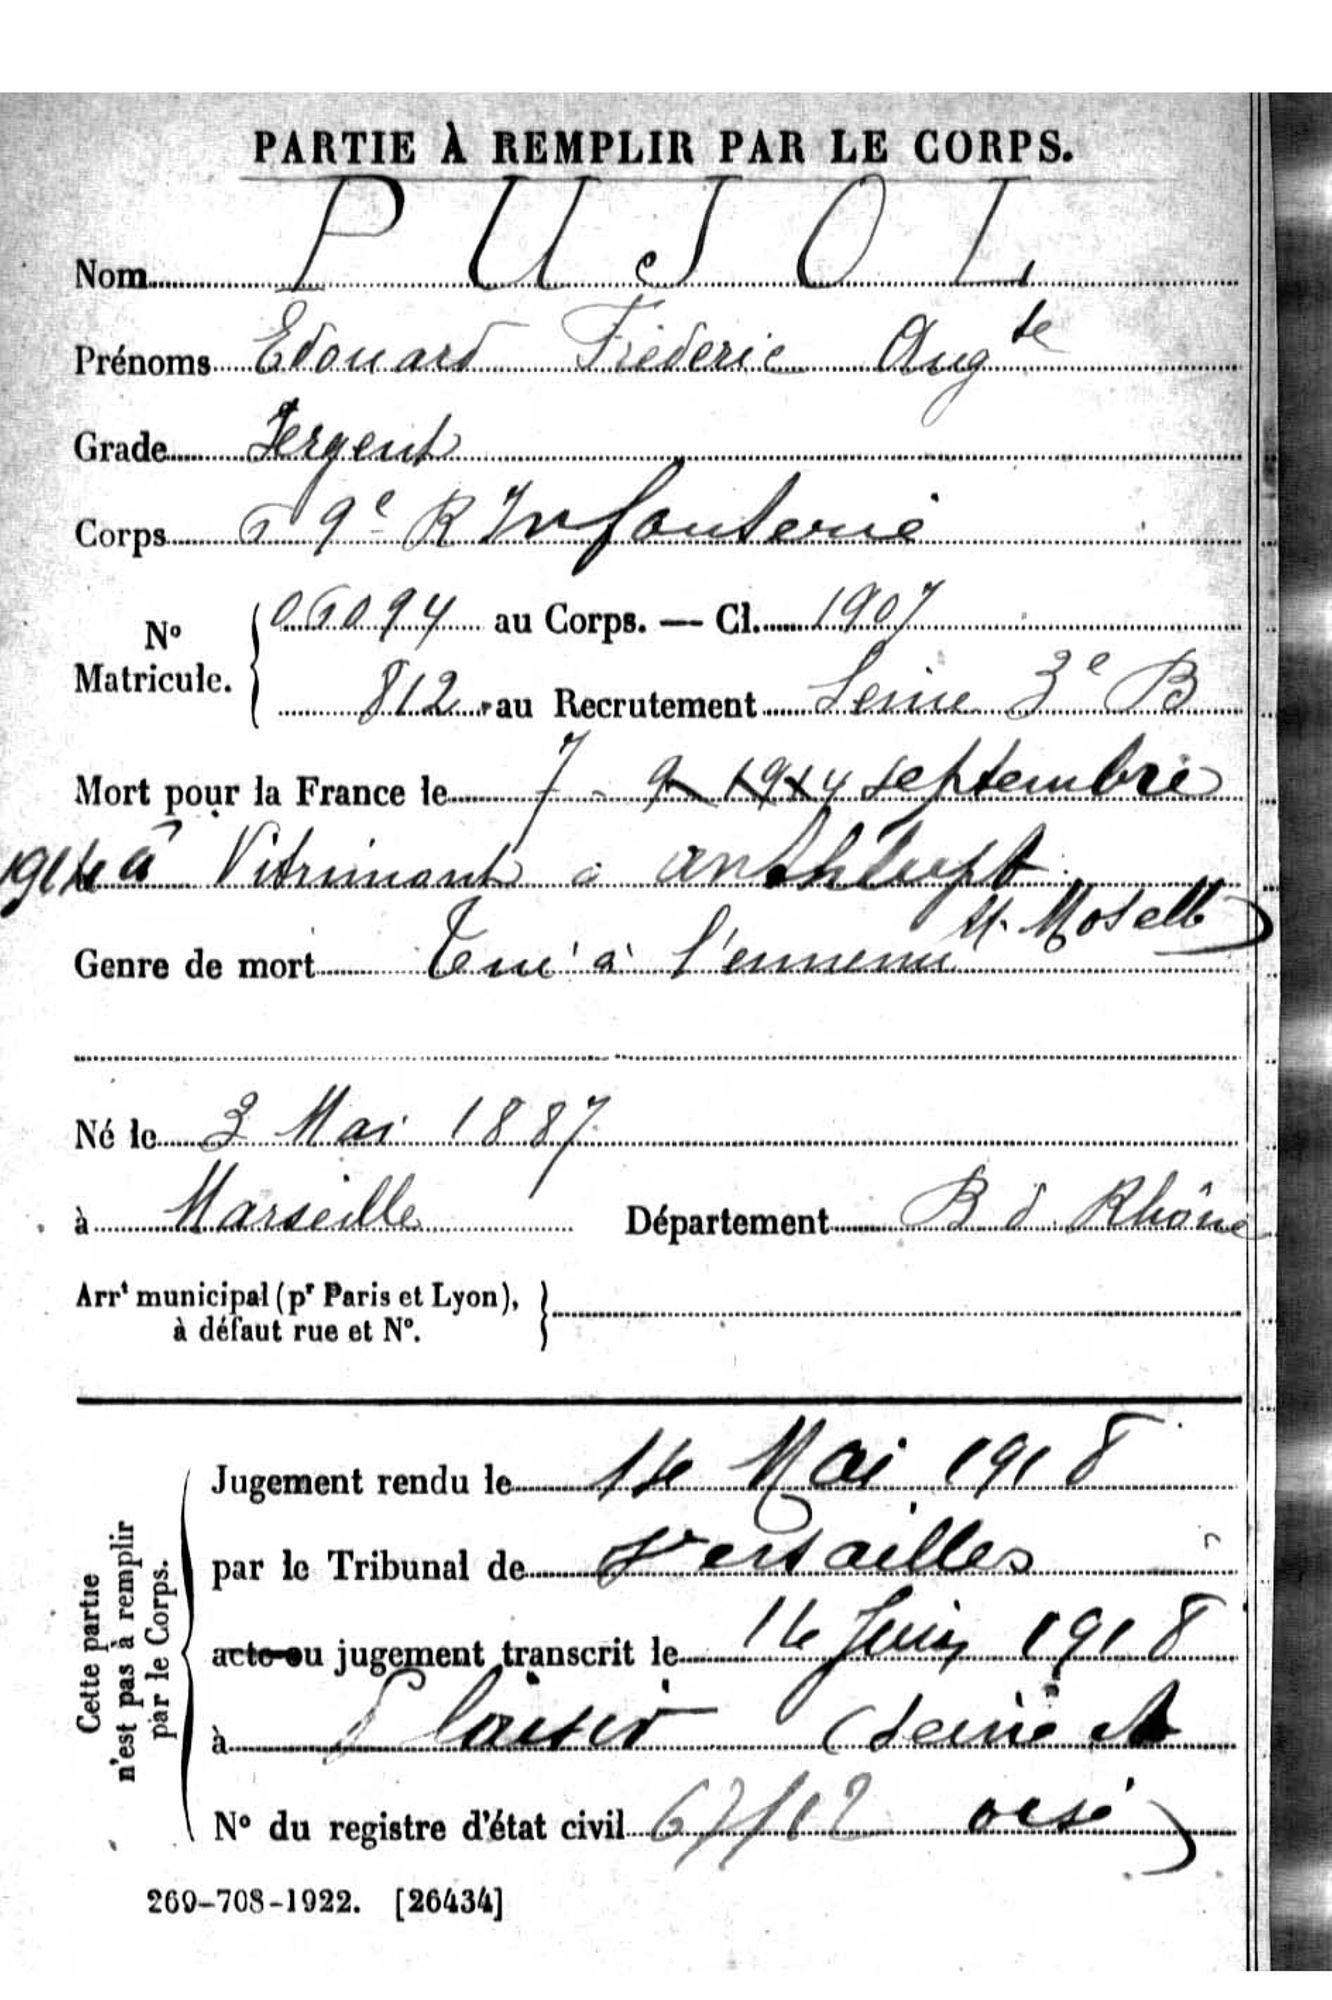 PARTIE À REMPLIR PAR LE CORPS.
Nom PUJOL
Prénoms Edouard Frédéric Aug te
Grade Sergent
Corps 69e R Infanterie
No Matricule. 06094 au Corps. — Cl. 1907
812 au Recrutement Seine 3e B
Mort pour la France le 7 - 9 1914 septembre
1914 à Vitrimont à anthelupt
Mt. Moselle)
Genre de mort Tué à l'ennemi
Né le 3 Mai 1887
à Marseille Département B d Rhône
Arrt municipal (pr Paris et Lyon),
à défaut rue et No.
Cette partie
n'est pas à remplir
par le Corps.
Jugement rendu le 14 Mai 1918
par le Tribunal de Versailles
acte ou jugement transcrit le 14 Juin 1918
à Plaisir (Seine et
No du registre d'état civil 67/12 oise)
269-708-1922. [26434]